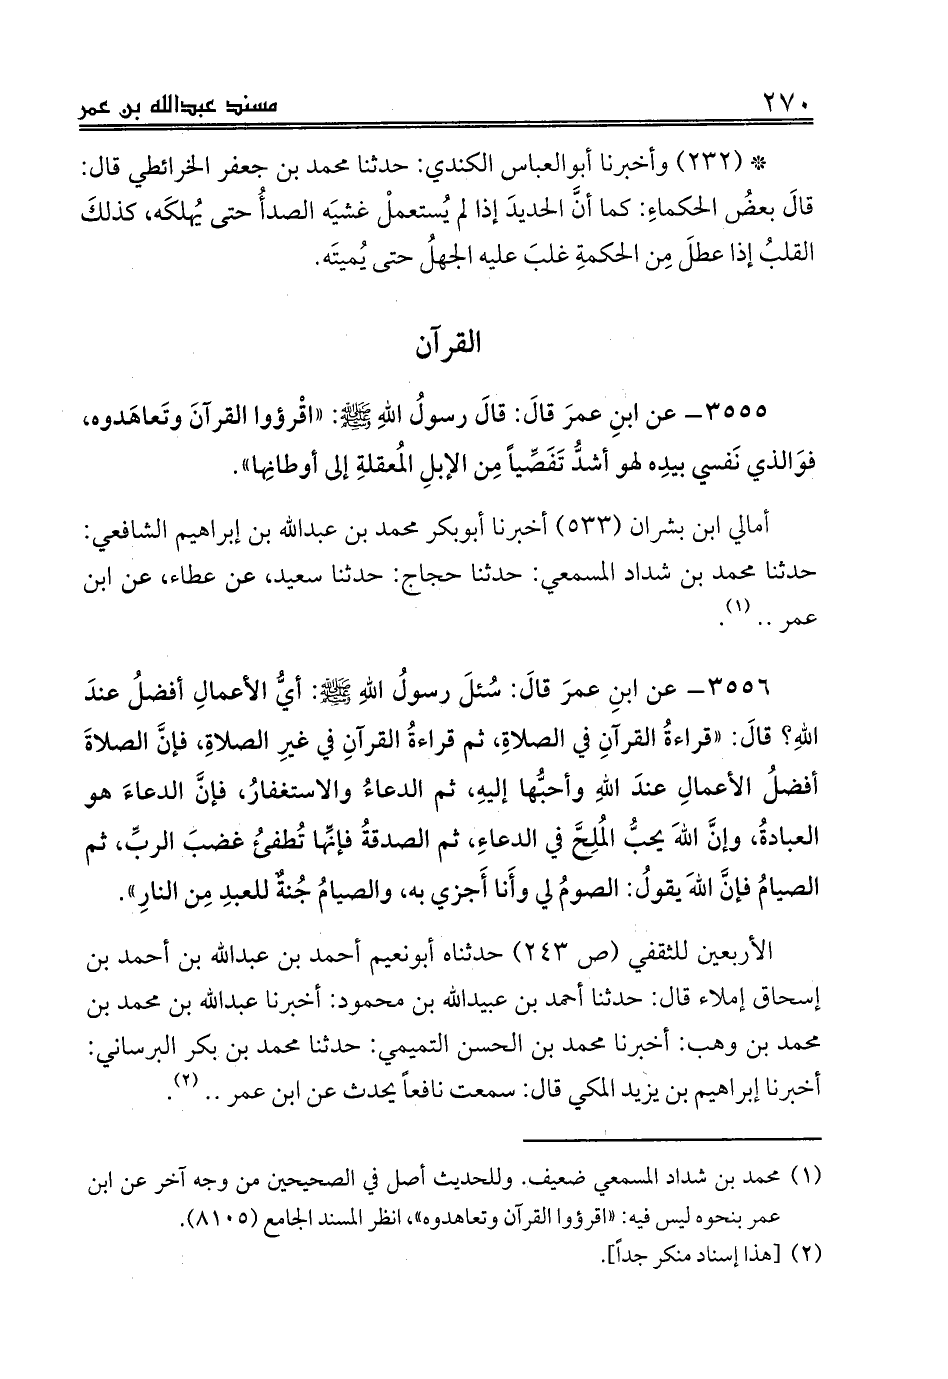 ٢٧٠ مسند عبدالله بن عمر
* (٢٣٢) وأخبرنا أبوالعباس الكندي: حدثنا محمد بن جعفر الخرائطي قال:
قالَ بعضُ الحكماءِ: كما أنَّ الحديدَ إذا لم يُستعملْ غشيَه الصدأُ حتى يُهلكَه، كذلكَ
القلبُ إذا عطلَ مِن الحكمةِ غلبَ عليه الجهلُ حتى يُميتَه.
القرآن
٣٥٥٥ـ عن ابنِ عمرَ قالَ: قالَ رسولُ اللهِ ﷺ: «اقْرؤوا القرآنَ وتَعاهَدوه،
فوَالذي نَفسي بيدِه لهو أشدُّ تَفَصِّياً مِن الإبلِ المُعقلةِ إلى أوطانِها».
أمالي ابن بشران (٥٣٣) أخبرنا أبوبكر محمد بن عبدالله بن إبراهيم الشافعي:
حدثنا محمد بن شداد المسمعي: حدثنا حجاج: حدثنا سعيد، عن عطاء، عن ابن
عمر .. (١).
٣٥٥٦ـ عن ابنِ عمرَ قالَ: سُئلَ رسولُ اللهِ ﷺ: أيُّ الأعمالِ أفضلُ عندَ
اللهِ؟ قالَ: «قراءةُ القرآنِ في الصلاةِ، ثم قراءةُ القرآنِ في غيرِ الصلاةِ، فإنَّ الصلاةَ
أفضلُ الأعمالِ عندَ اللهِ وأحبُّها إليهِ، ثم الدعاءُ والاستغفارُ، فإنَّ الدعاءَ هو
العبادةُ، وإنَّ اللهَ يحبُّ المُلِحَّ في الدعاءِ، ثم الصدقةُ فإنَّها تُطفئُ غضبَ الربِّ، ثم
الصيامُ فإنَّ اللهَ يقولُ: الصومُ لي وأَنا أَجزي به، والصيامُ جُنةٌ للعبدِ مِن النارِ».
الأربعين للثقفي (ص ٢٤٣) حدثناه أبونعيم أحمد بن عبدالله بن أحمد بن
إسحاق إملاء قال: حدثنا أحمد بن عبيدالله بن محمود: أخبرنا عبدالله بن محمد بن
محمد بن وهب: أخبرنا محمد بن الحسن التميمي: حدثنا محمد بن بكر البرساني:
أخبرنا إبراهيم بن يزيد المكي قال: سمعت نافعاً يحدث عن ابن عمر .. (٢).
(١) محمد بن شداد المسمعي ضعيف. وللحديث أصل في الصحيحين من وجه آخر عن ابن
عمر بنحوه ليس فيه: «اقرؤوا القرآن وتعاهدوه»، انظر المسند الجامع (٨١٠٥).
(٢) [هذا إسناد منكر جداً].